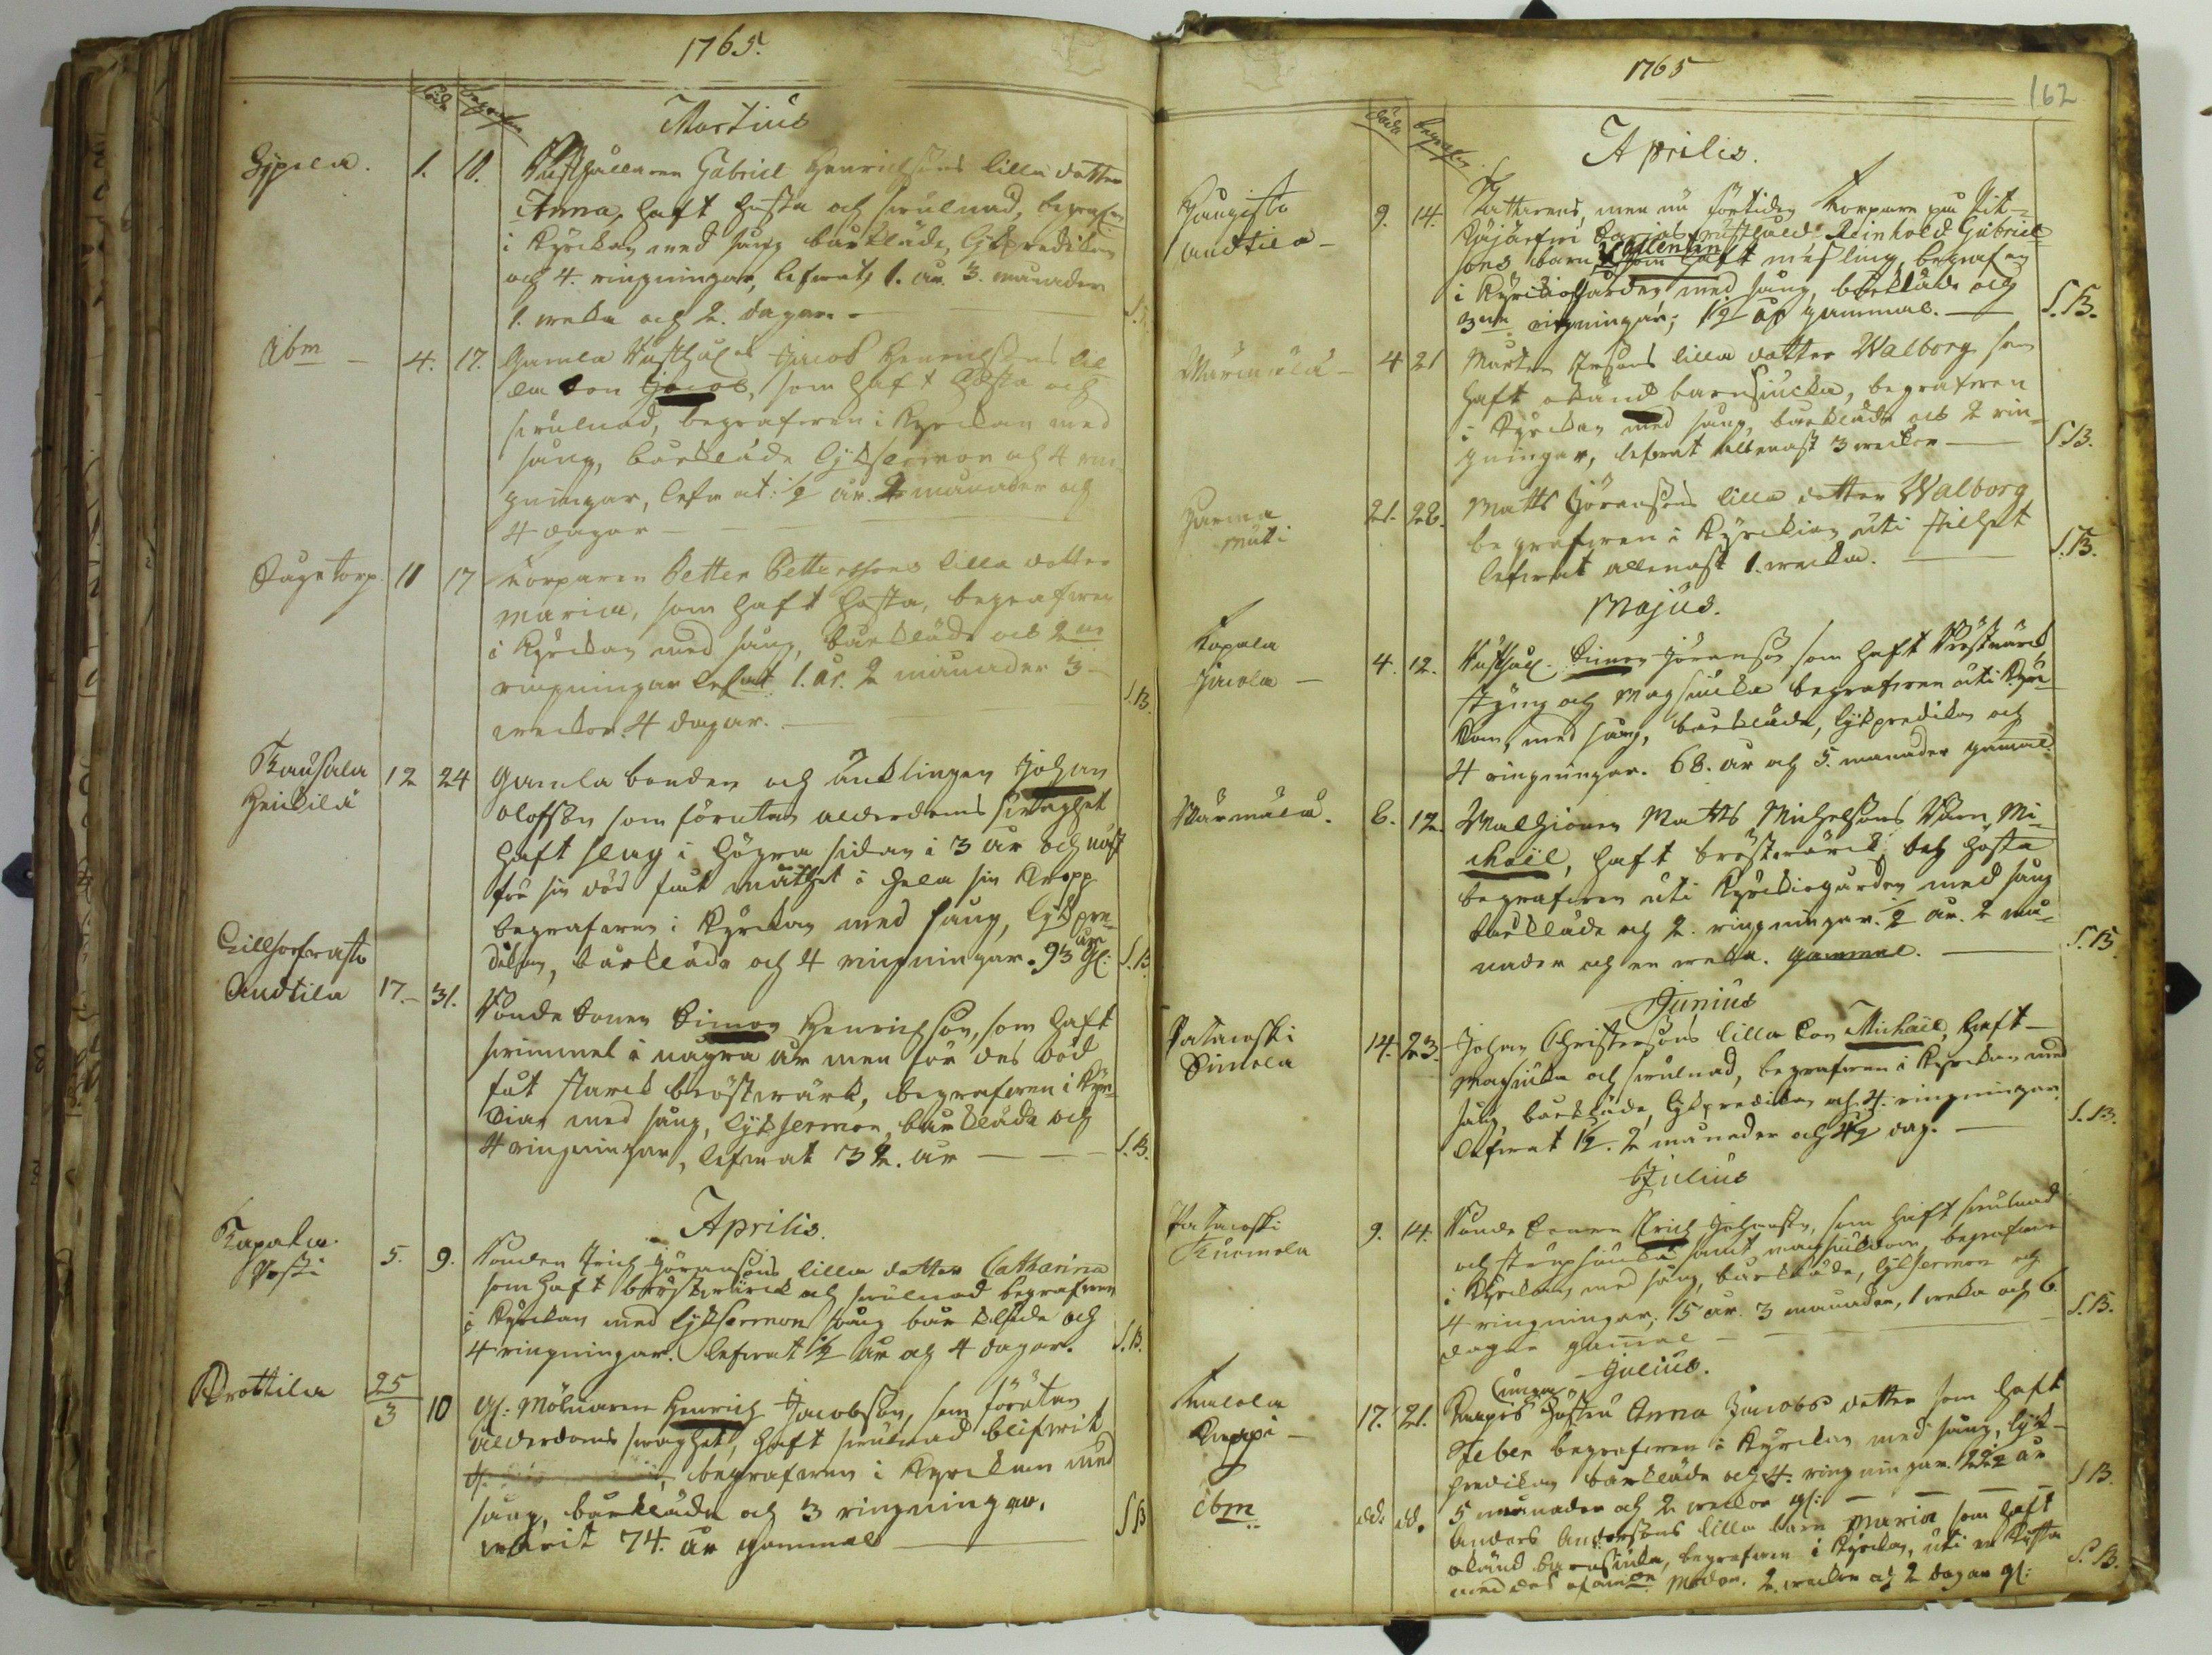 1765.
Död begrafn
Martius
1. 10. Rusthållaren Gabriel Henrichsons lilla dotter
Anna, haft hosta och swulnad, begrafn
i Kyrckan med sång bårkläde, likpredikan
och 4. ringningar, lefwat, 1. år 3. månader
1. wecka och 2. dagar.
Ibm 4. 17. Gamla Rusthål Jacob Henrichssons lil-
la son Jacob, som haft hosta och
swulnad, begrafwen i Kyrckan med
sång, bårkläde liksermon och 4 rin-
gningar, lefwat: ½ år 2 månader och
4 dagar
11 17 Torparen Petter Pettersons lilla dotter
Maria, som haft hosta, begrafwen
i Kyrckan med sång, bårkläde och 2ne
ringningar lefwat 1. år. 2 månader 3
weckor. 4 dagar. S.B.
Kausala
Heickilä 12 24 Gamla bonden och änklingen Johan
Olofsson som förutan ålderdoms swaghet
haft slag i högra sidan i 3 år och näst
för sin död fått mätthet i hela sin kropp
begrafwen i Kyrckan med sång, likpre-
dikan, bårkläde och 4 ringningar. 93 år gl: S.B.
Anttila 17. 31. Bonde Sonen Simon Henrichson, som haft
swimmel i några år men för des död
fåt starck bröstwärk, begrafwen i Kyr-
kian med sång, likssermon, bårkläde och
4 ringningar, lefwat 32. år S.B.
Aprilis.
5. 9. Bonden Erich Jöransons lilla dotter Catharina
som haft bröstwärck och swulnad begrafwen
i Kyrckan med likssermon sång bårkläde och
4 ringningar. lefwat ½ år och 4 dagar. S.B.
Prottila 25/3 10 gl: Mölnaren Henrich Jacobson, som förutan
ålderdoms swaghet, haft swulnad blifwit
begrafwen i Kyrckan med
sång, bårkläde och 3 ringningar,
warit 74. år gammal S B
1765
162
döde begrafen
Aprilis.
9. 14. Torpare på
Reinhold Gabriel-
sons barn Vallentin som haft mässling, begrafen
i Kyrckiogården med sång, bårkläde och
3ne ringningar; ½ år gammal. S.B.
4 21 Mårten Ersons lilla dotter Walborg som
haft okänd barnsiucka, begrafwen
i Kyrckan med sång, bårkläde och 2 rin-
gningar, lefwat allenast 3 weckor S.B.
21. 28. Matts Jöransons lilla dotter Walborg
begrafwen i Kyrckian uti stilhet
lefwat allenast 1. wecka. S.B.
Majus.
4. 12. Rusthål. Simon Jöranson, som haft Bröstwärck
styng och Magsiucka begrafwen uti Kyr-
kan, med sång, bårkläde, likpredikan och
4 ringningar. 68. år och 5. månader gammal.
6. 12. Matts Michelsons Barn, Mi-
chaël, haft bröstwärck och hosta
begrafwen uti Kyrckiogården med sång
bårkläde och 2. ringningar. ½ år. 2 må-
nader och en wecka. gammal. S.B.
Junius
14. 23. Johan Christersons lilla Son Michaël, haft
Magsiuka och swulnad, begrafwen i Kyrckan med
sång, bårkläde, likpredikan och 4. ringningar
lefwat ½. 2 månader och ½ dag. S.B.
Julius
9. 14. Bonde Sonen Erich Johanson, som haft swulnad
och strupsiucka samt magsiukdom, begrafwen
i Kyrckan, med sång, bårkläde, likssermon och
4 ringningar, 15 år. 3 månader, 1 wecka och 6.
dagar gammal S.B.
Julius.
17. 21. hustru Anna Jacobs dotter som haft
Feber begrafwen i Kyrckan med sång, lik-
predikan bårkläde och 4. ringningar. 22½ år
5 månader och 2 weckor gl: S B.
Ibm dd. dd. Anders Andersons lilla barn Maria som haft
okänd barnsiuka, begrafwen i Kyrckan, uti en Kista
med des moder. 2 weckor och 2 dagar gl: S.B.